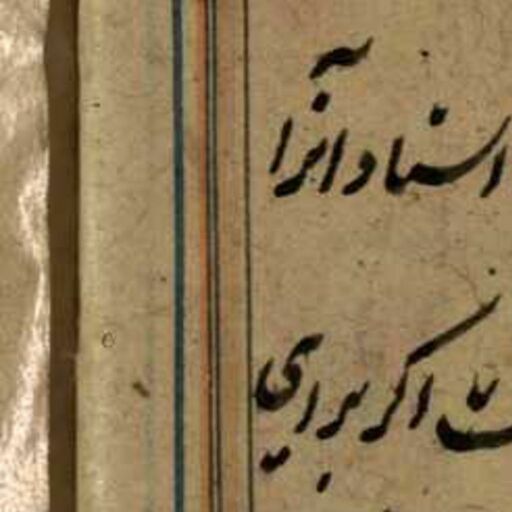 استاد آنرا
اکر برای